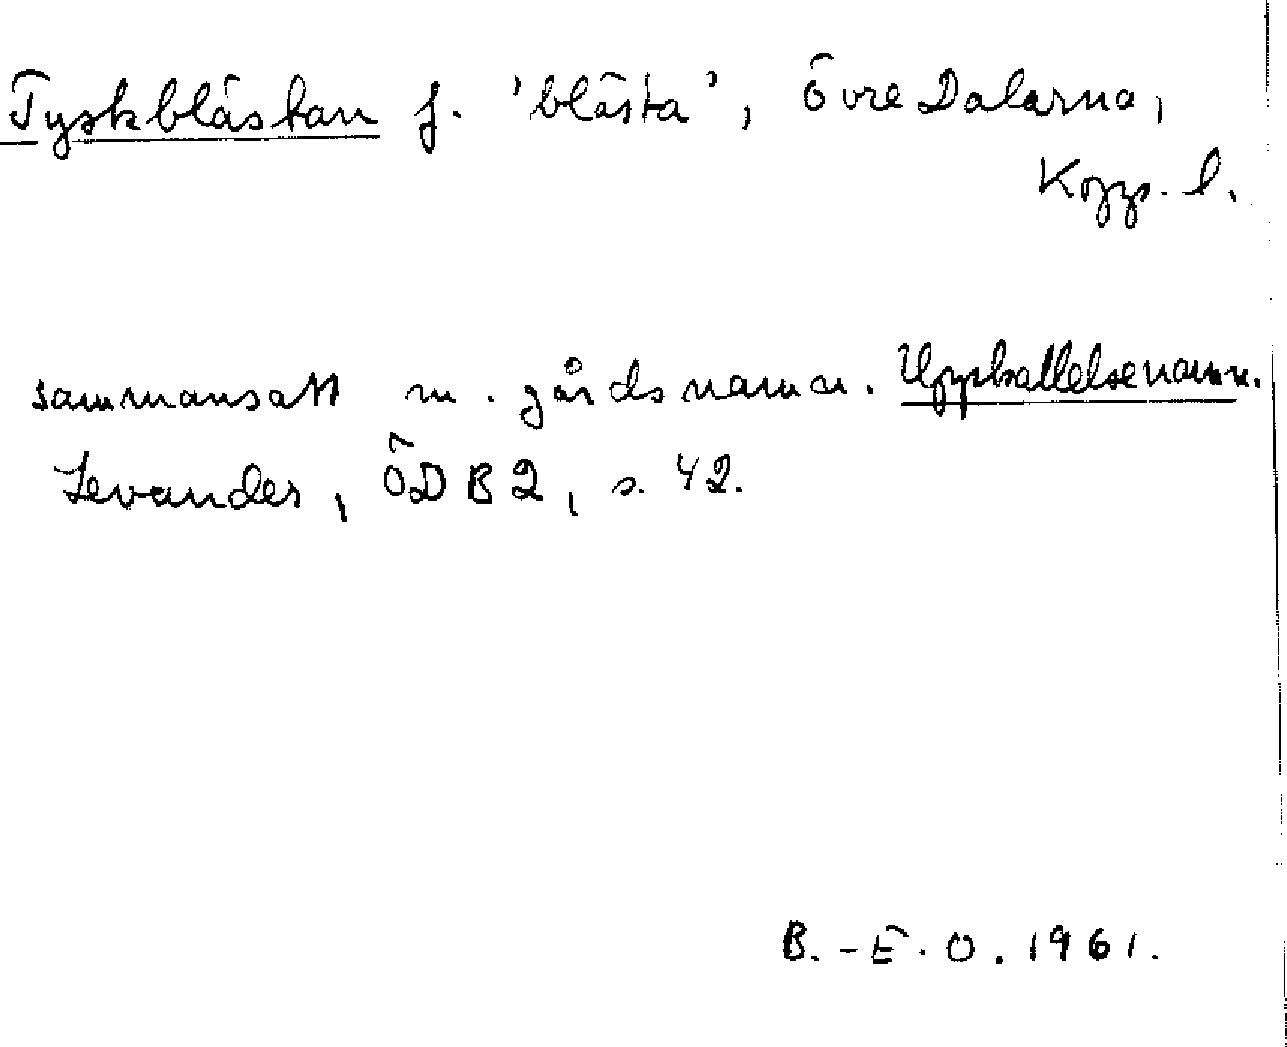 Tyskbläsban f. 'bläsba', Övre Dalarna,
Kopp. l.
sammansatt m. gårdsnamn. Uppkallelsenamn.
Levander, ÖDB2, s. 42.
B.-E.O. 1961.